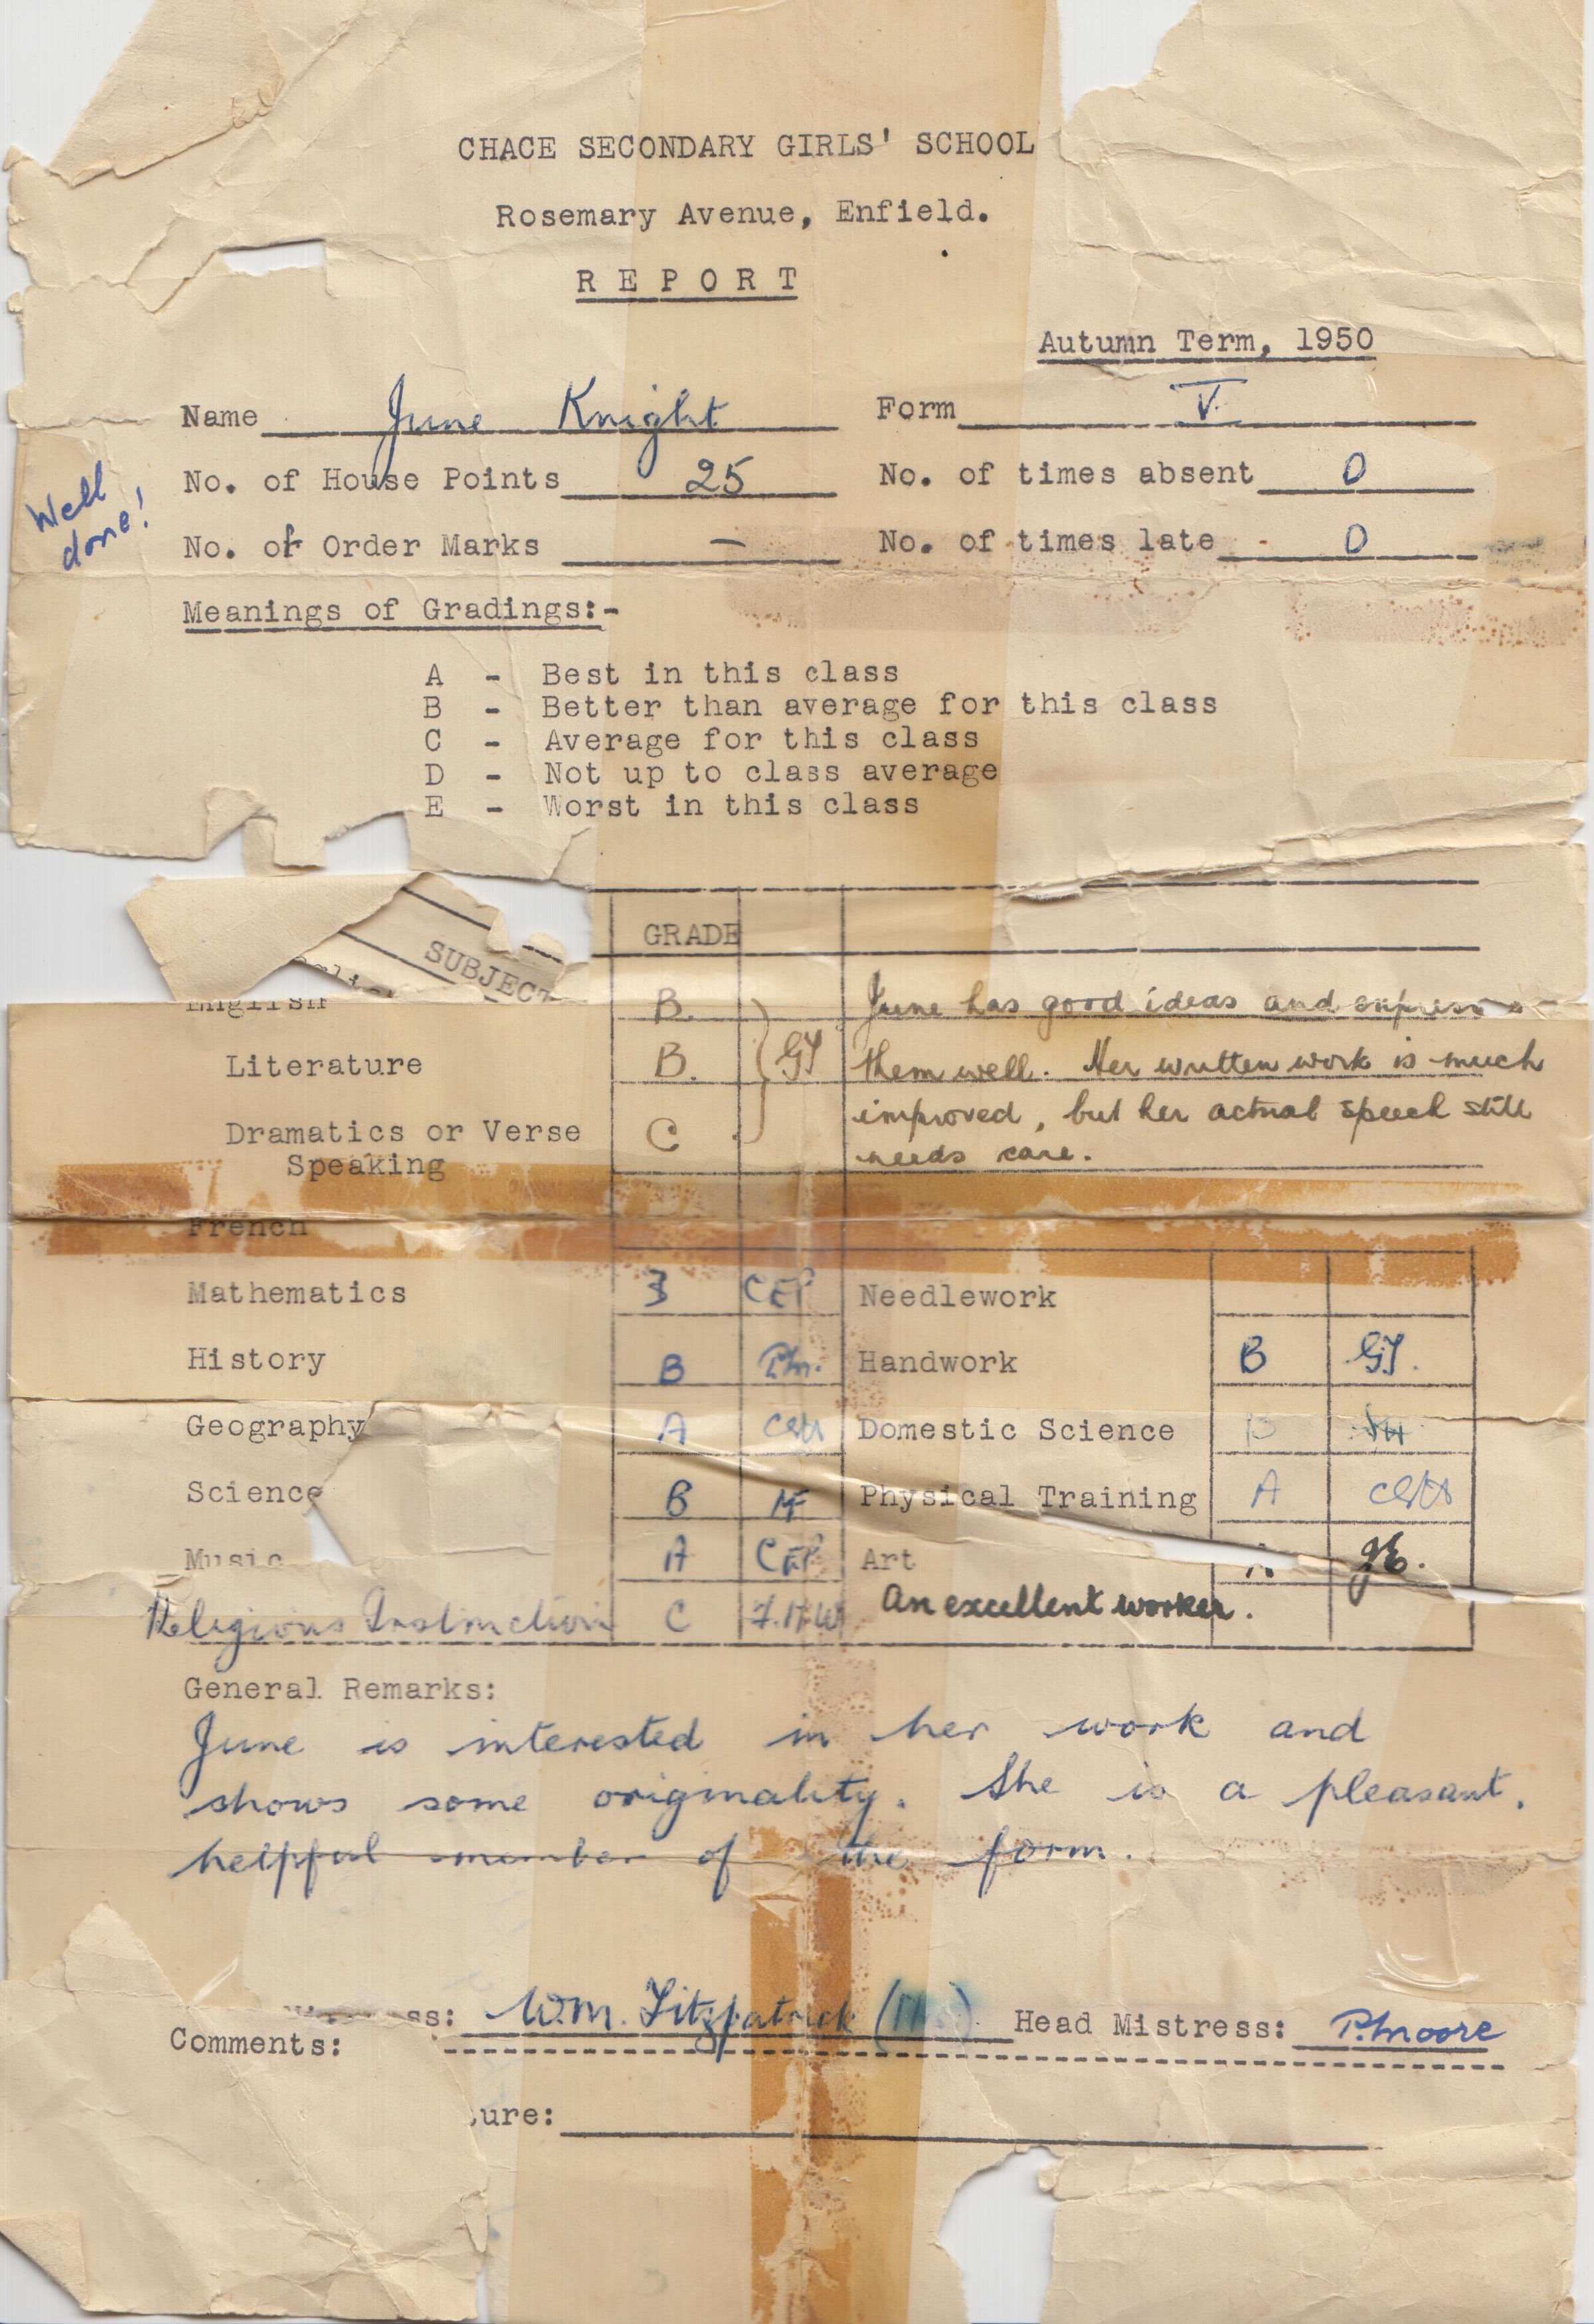 CHACE SECONDARY GIRLS' SCHOOL
Rosemary Avenue, Enfield.
REPORT
Autumn Term, 1950
Name June Knight Form V.
No. of House Points 25 No. of times absent 0
Well done!
No. of Order Marks – No. of times late 0
Meanings of Gradings:-
A - Best in this class
B - Better than average for this class
C - Average for this class
D - Not up to class average
E - Worst in this class
SUBJECT GRADE
English B. June has good ideas and express
Literature B. GJ them well. Her written work is much
Dramatics or Verse C improved, but her actual speech still
Speaking needs care.
French
Mathematics CEP Needlework
History B Pm. Handwork B GJ.
Geography A Domestic Science
Science B Physical Training A
Music A CEP Art A
Religious Instruction C An excellent worker.
General Remarks:
June is interested in her work and
shows some originality. She is a pleasant,
helpful member of the form.
ss: W.M. Fitzpatrick Head Mistress: P. Moore
Comments:
ure: